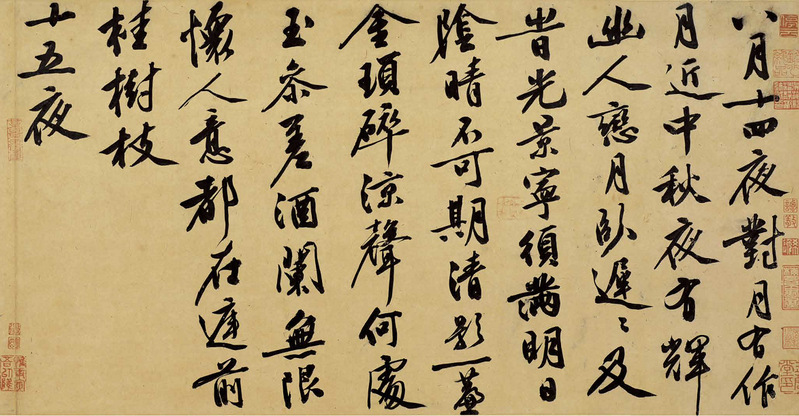 八月十四夜對月有作
月近中秋夜有輝
幽人戀月卧遲〻及
昔光景寧須滿明日
陰晴不可期清影一簾
金瑣碎涼聲何處
玉參差酒闌無限
懷人意都在遲前
桂樹枝
十五夜